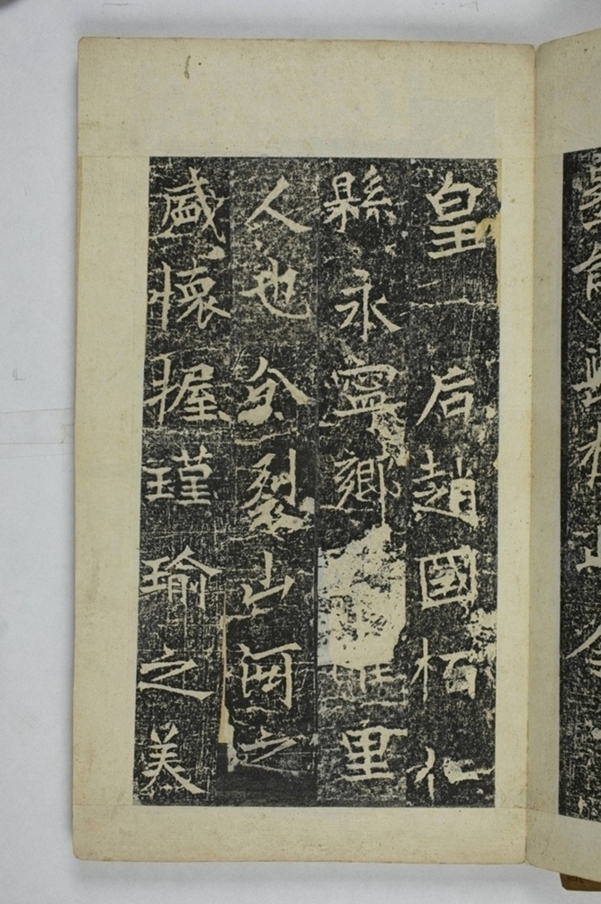 皇后趙國栢仁
縣永寧鄉里
人也分裂山河之
盛懷握瑾瑜之美